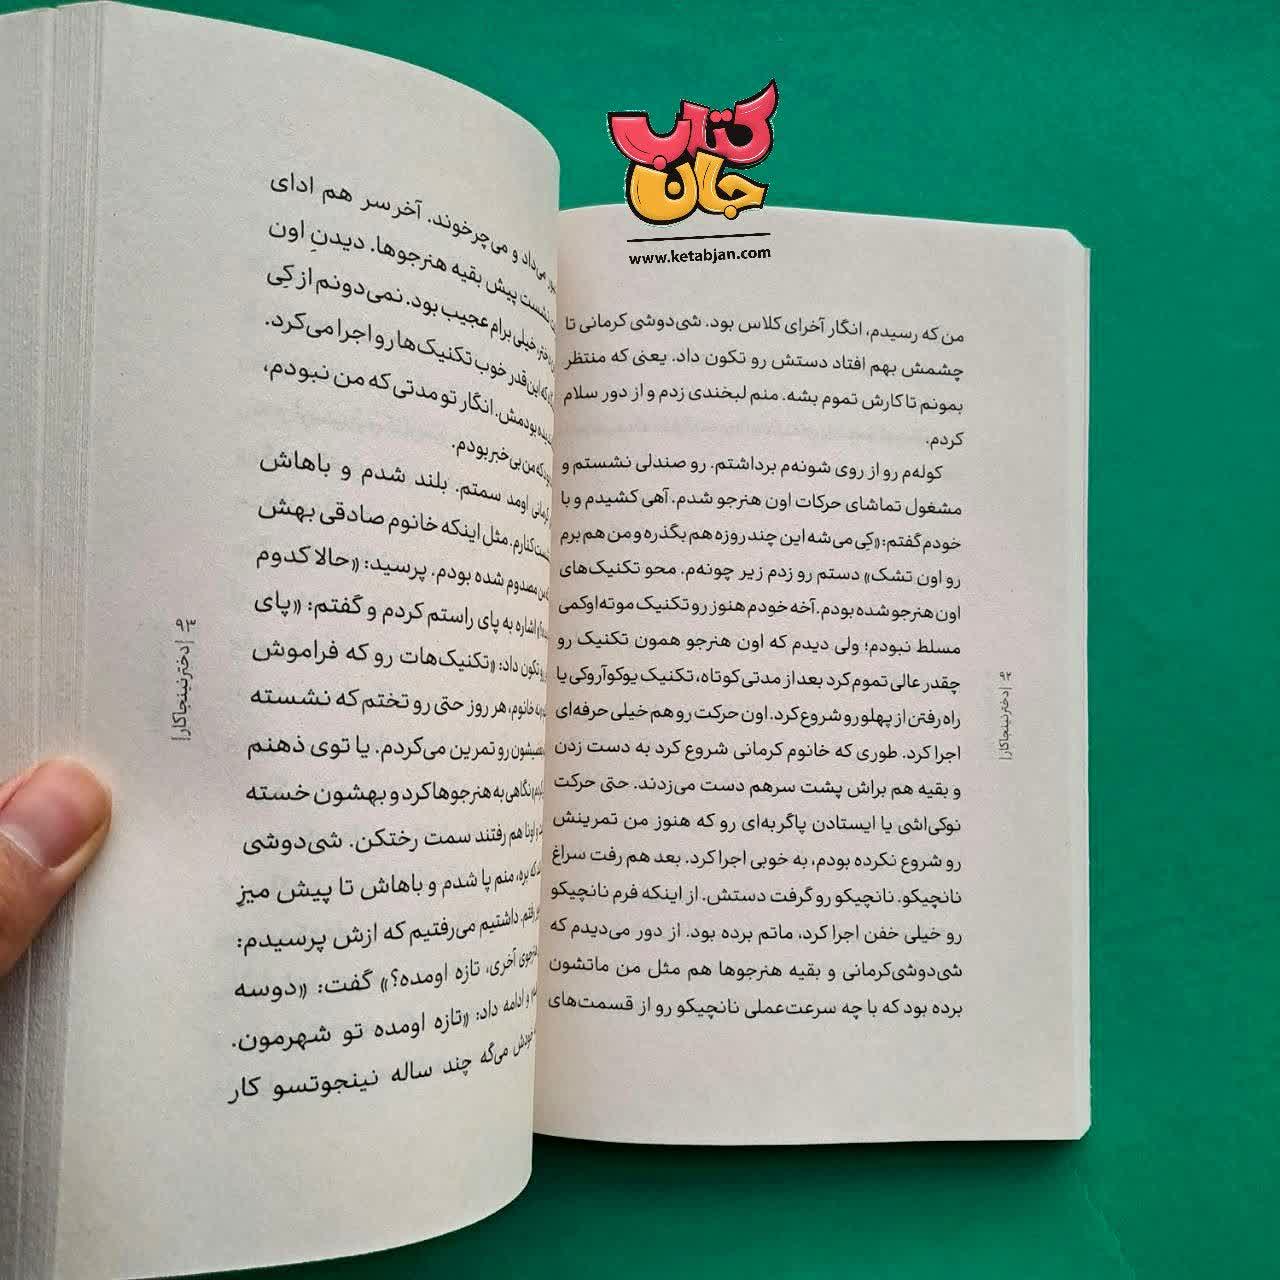 کتاب
جان
www.ketabjan.com
من که رسیدم، انگار آخرای کلاس بود. شی‌دوشی کرمانی تا
چشمش بهم افتاد دستش رو تکون داد. یعنی که منتظر
بمونم تا کارش تموم بشه. منم لبخندی زدم و از دور سلام
کردم.
کوله‌م رو از روی شونه‌م برداشتم. رو صندلی نشستم و
مشغول تماشای حرکات اون هنرجو شدم. آهی کشیدم و با
خودم گفتم: «کِی می‌شه این چند روزه هم بگذره و من هم برم
رو اون تشک» دستم رو زدم زیر چونه‌م. محو تکنیک‌های
اون هنرجو شده بودم. آخه خودم هنوز رو تکنیک موته‌اوکمی
مسلط نبودم؛ ولی دیدم که اون هنرجو همون تکنیک رو
چقدر عالی تموم کرد بعد از مدتی کوتاه، تکنیک یوکوآروکی یا
راه رفتن از پهلو رو شروع کرد. اون حرکت رو هم خیلی حرفه‌ای
اجرا کرد. طوری که خانوم کرمانی شروع کرد به دست زدن
و بقیه هم براش پشت سرهم دست می‌زدند. حتی حرکت
نوکی‌اشی یا ایستادن پاگربه‌ای رو که هنوز من تمرینش
رو شروع نکرده بودم، به خوبی اجرا کرد. بعد هم رفت سراغ
نانچیکو. نانچیکو رو گرفت دستش. از اینکه فرم نانچیکو
رو خیلی خفن اجرا کرد، ماتم برده بود. از دور می‌دیدم که
شی‌دوشی‌کرمانی و بقیه هنرجوها هم مثل من ماتشون
برده بود که با چه سرعت‌عملی نانچیکو رو از قسمت‌های
۹۲ | دختر نینجاکار |
می‌داد و می‌چرخوند. آخرسر هم ادای
نشست پیش بقیه هنرجوها. دیدنِ اون
خیلی برام عجیب بود. نمی‌دونم از کِی
که این قدر خوب تکنیک‌ها رو اجرا می‌کرد.
ندیده بودمش. انگار تو مدتی که من نبودم،
که من بی‌خبر بودم.
کرمانی اومد سمتم. بلند شدم و باهاش
کنارم. مثل اینکه خانوم صادقی بهش
من مصدوم شده بودم. پرسید: «حالا کدوم
اشاره به پای راستم کردم و گفتم: «پای
تکون داد: «تکنیک‌هات رو که فراموش
خانوم، هر روز حتی رو تختم که نشسته
رو تمرین می‌کردم. یا توی ذهنم
نگاهی به هنرجوها کرد و بهشون خسته
اونا هم رفتند سمت رختکن. شی‌دوشی
که بره، منم پا شدم و باهاش تا پیش میزِ
رفتم. داشتیم می‌رفتیم که ازش پرسیدم:
آخری، تازه اومده؟» گفت: «دوسه
و ادامه داد: «تازه اومده تو شهرمون.
خودش می‌گه چند ساله نینجوتسو کار
۹۳ | دختر نینجاکار |